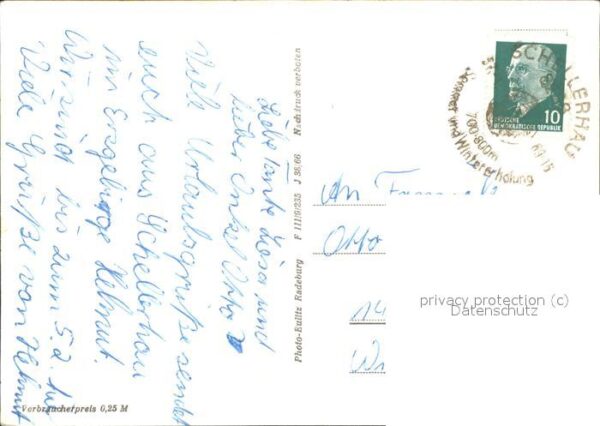 Liebe Tante Lisa und
lieber Onkel Otto
Viele Urlaubsgrüße sendet
euch aus Schellerhau
im Erzgebirge Helmut.
Wir sind bis zum 5.2. hier
Viele Grüße von Helmut
Verbraucherpreis 0,25 M
Photo-Eulitz Radeburg F 111/9/235 J 38.66 Nachdruck verboten
SCHELLERHAU
700-800m
Sommer und Wintererholung
10
DEUTSCHE
DEMOKRATISCHE REPUBLIK
An
Otto
14
privacy protection (c)
Datenschutz